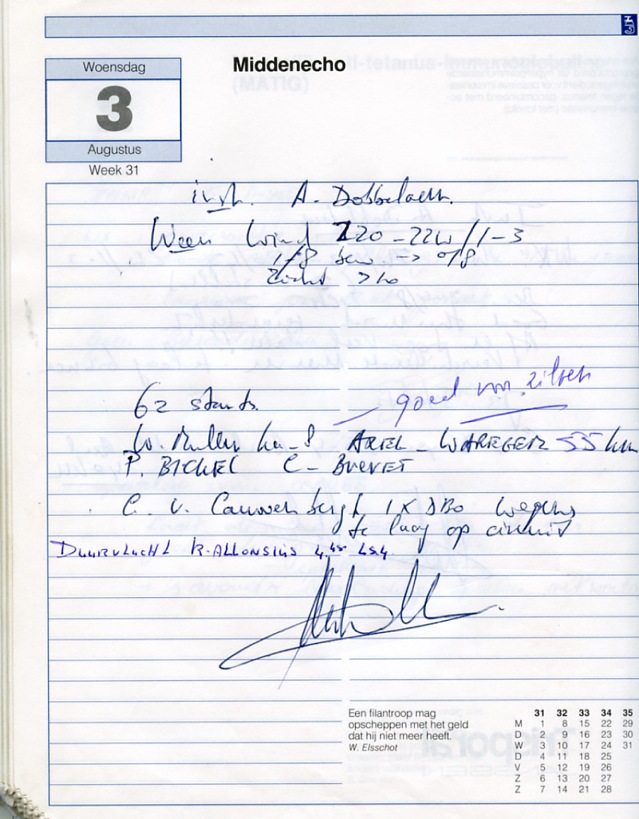 Middenecho
Woensdag
3
Augustus
Week 31
A. Dobbelaere.
Wind 220 - 22W / 1-3
1/8 bew. -> 0/8
Zicht >10
62 starts.
goed om zitten
W. Muller Ka-8 AXEL - WAREGEM 55 km
P. BICKEL C - BREVET
C. V. Cauwenbergh 1x DBO wegens
te laag op circuit
DUURVLUCHT K. ALLONSIUS LS4
Een filantroop mag
opscheppen met het geld
dat hij niet meer heeft.
W. Elsschot
31 32 33 34 35
M 1 8 15 22 29
D 2 9 16 23 30
W 3 10 17 24 31
D 4 11 18 25
V 5 12 19 26
Z 6 13 20 27
Z 7 14 21 28